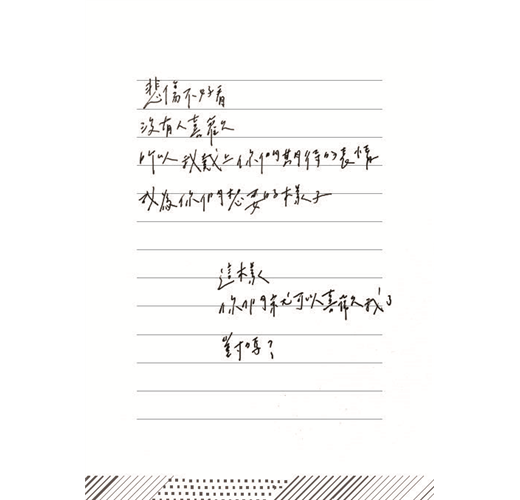 悲傷不好看
沒有人喜歡
所以我戴上你們期待的表情
成為你們想要的樣子
這樣
你們就可以喜歡我了
對嗎?